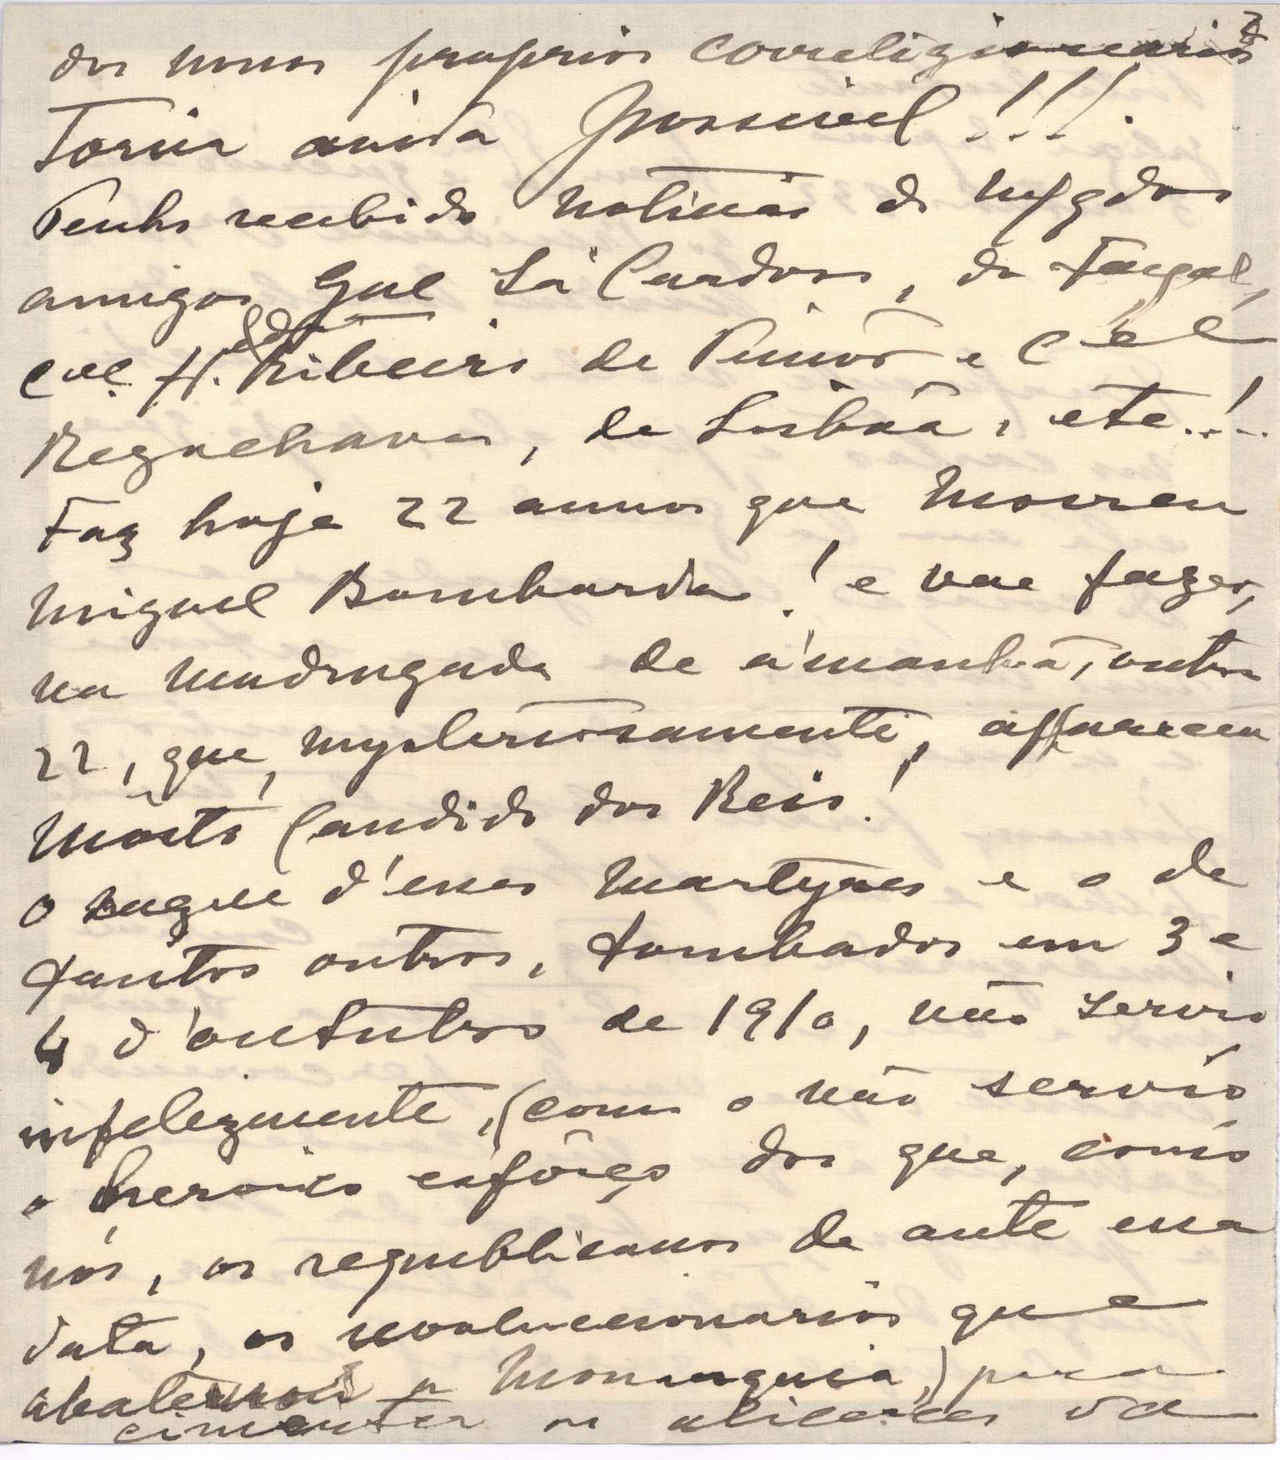 dos nossos proprios correligionarios
Torna ainda possivel!!!.
Tenho recebido noticias do
amigos Gal Sá Cardoso, do Fayal,
Cel H. Ribeiro de Pinior e Cel
Reguchavas, de Lisbôa, etc..!..
Faz hoje 22 annos que morreu
Miguel Bombarda! e vae fazer,
na madrugada de ámanhã, outros
22, que, mysteriosamente, appareceu
môrto Candido dos Reis!
O sangue d'esses martyres e o de
tantos outros, tombados em 3 e
4 d'outubro de 1910, não servio
infelizmente, (como o não servio
o heroico esfôrço dos que, como
nós, os republicanos de ante essa
data, os revolucionarios que
abatemos a Monarquia,) para
cimentar os alicerces da